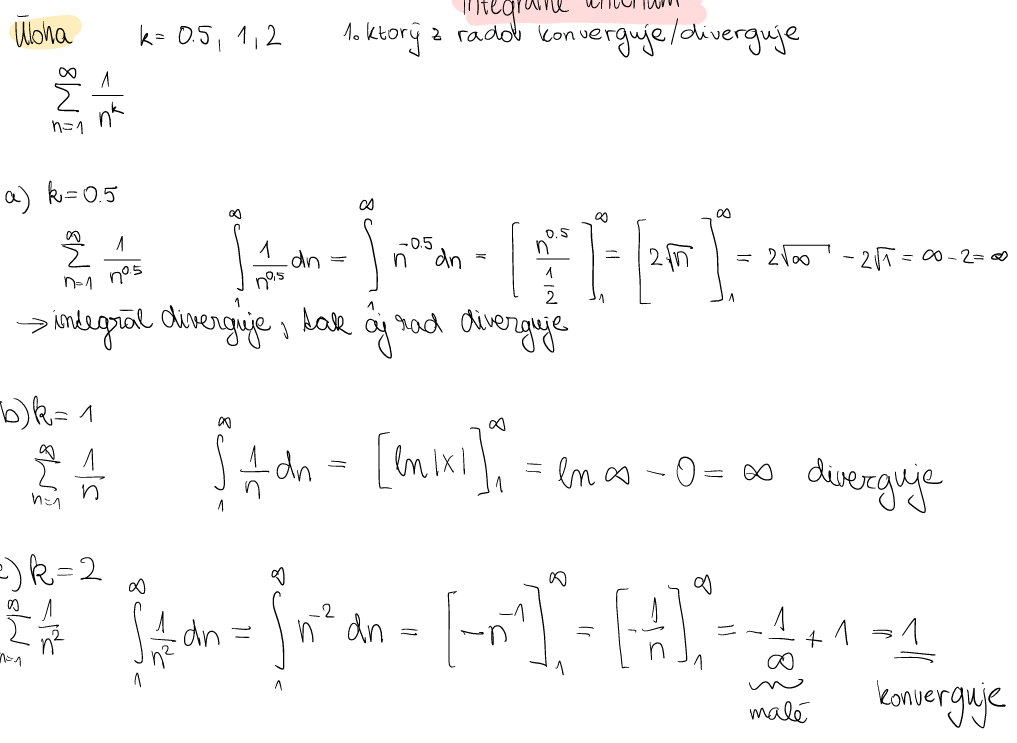 integrálne kritérium
Úloha k= 0.5, 1, 2 1. ktorý z radov konverguje/diverguje
∞
∑ 1/n^k
n=1
a) k=0.5
∑_{n=1}^{∞} 1/n^{0.5} ∫_1^∞ 1/n^{0,5} dn = ∫_1^∞ n^{-0.5} dn = [n^{0.5}/(1/2)]_1^∞ = [2√n]_1^∞ = 2√∞ - 2√1 = ∞ - 2 = ∞
→ integrál diverguje, tak aj rad diverguje
b) k= 1
∑_{n=1}^{∞} 1/n ∫_1^∞ 1/n dn = [ln|x|]_1^∞ = ln ∞ - 0 = ∞ diverguje
c) k=2
∑_{n=1}^{∞} 1/n² ∫_1^∞ 1/n² dn = ∫_1^∞ n^{-2} dn = [-n^{-1}]_1^∞ = [-1/n]_1^∞ = -1/∞ + 1 = 1
malé konverguje